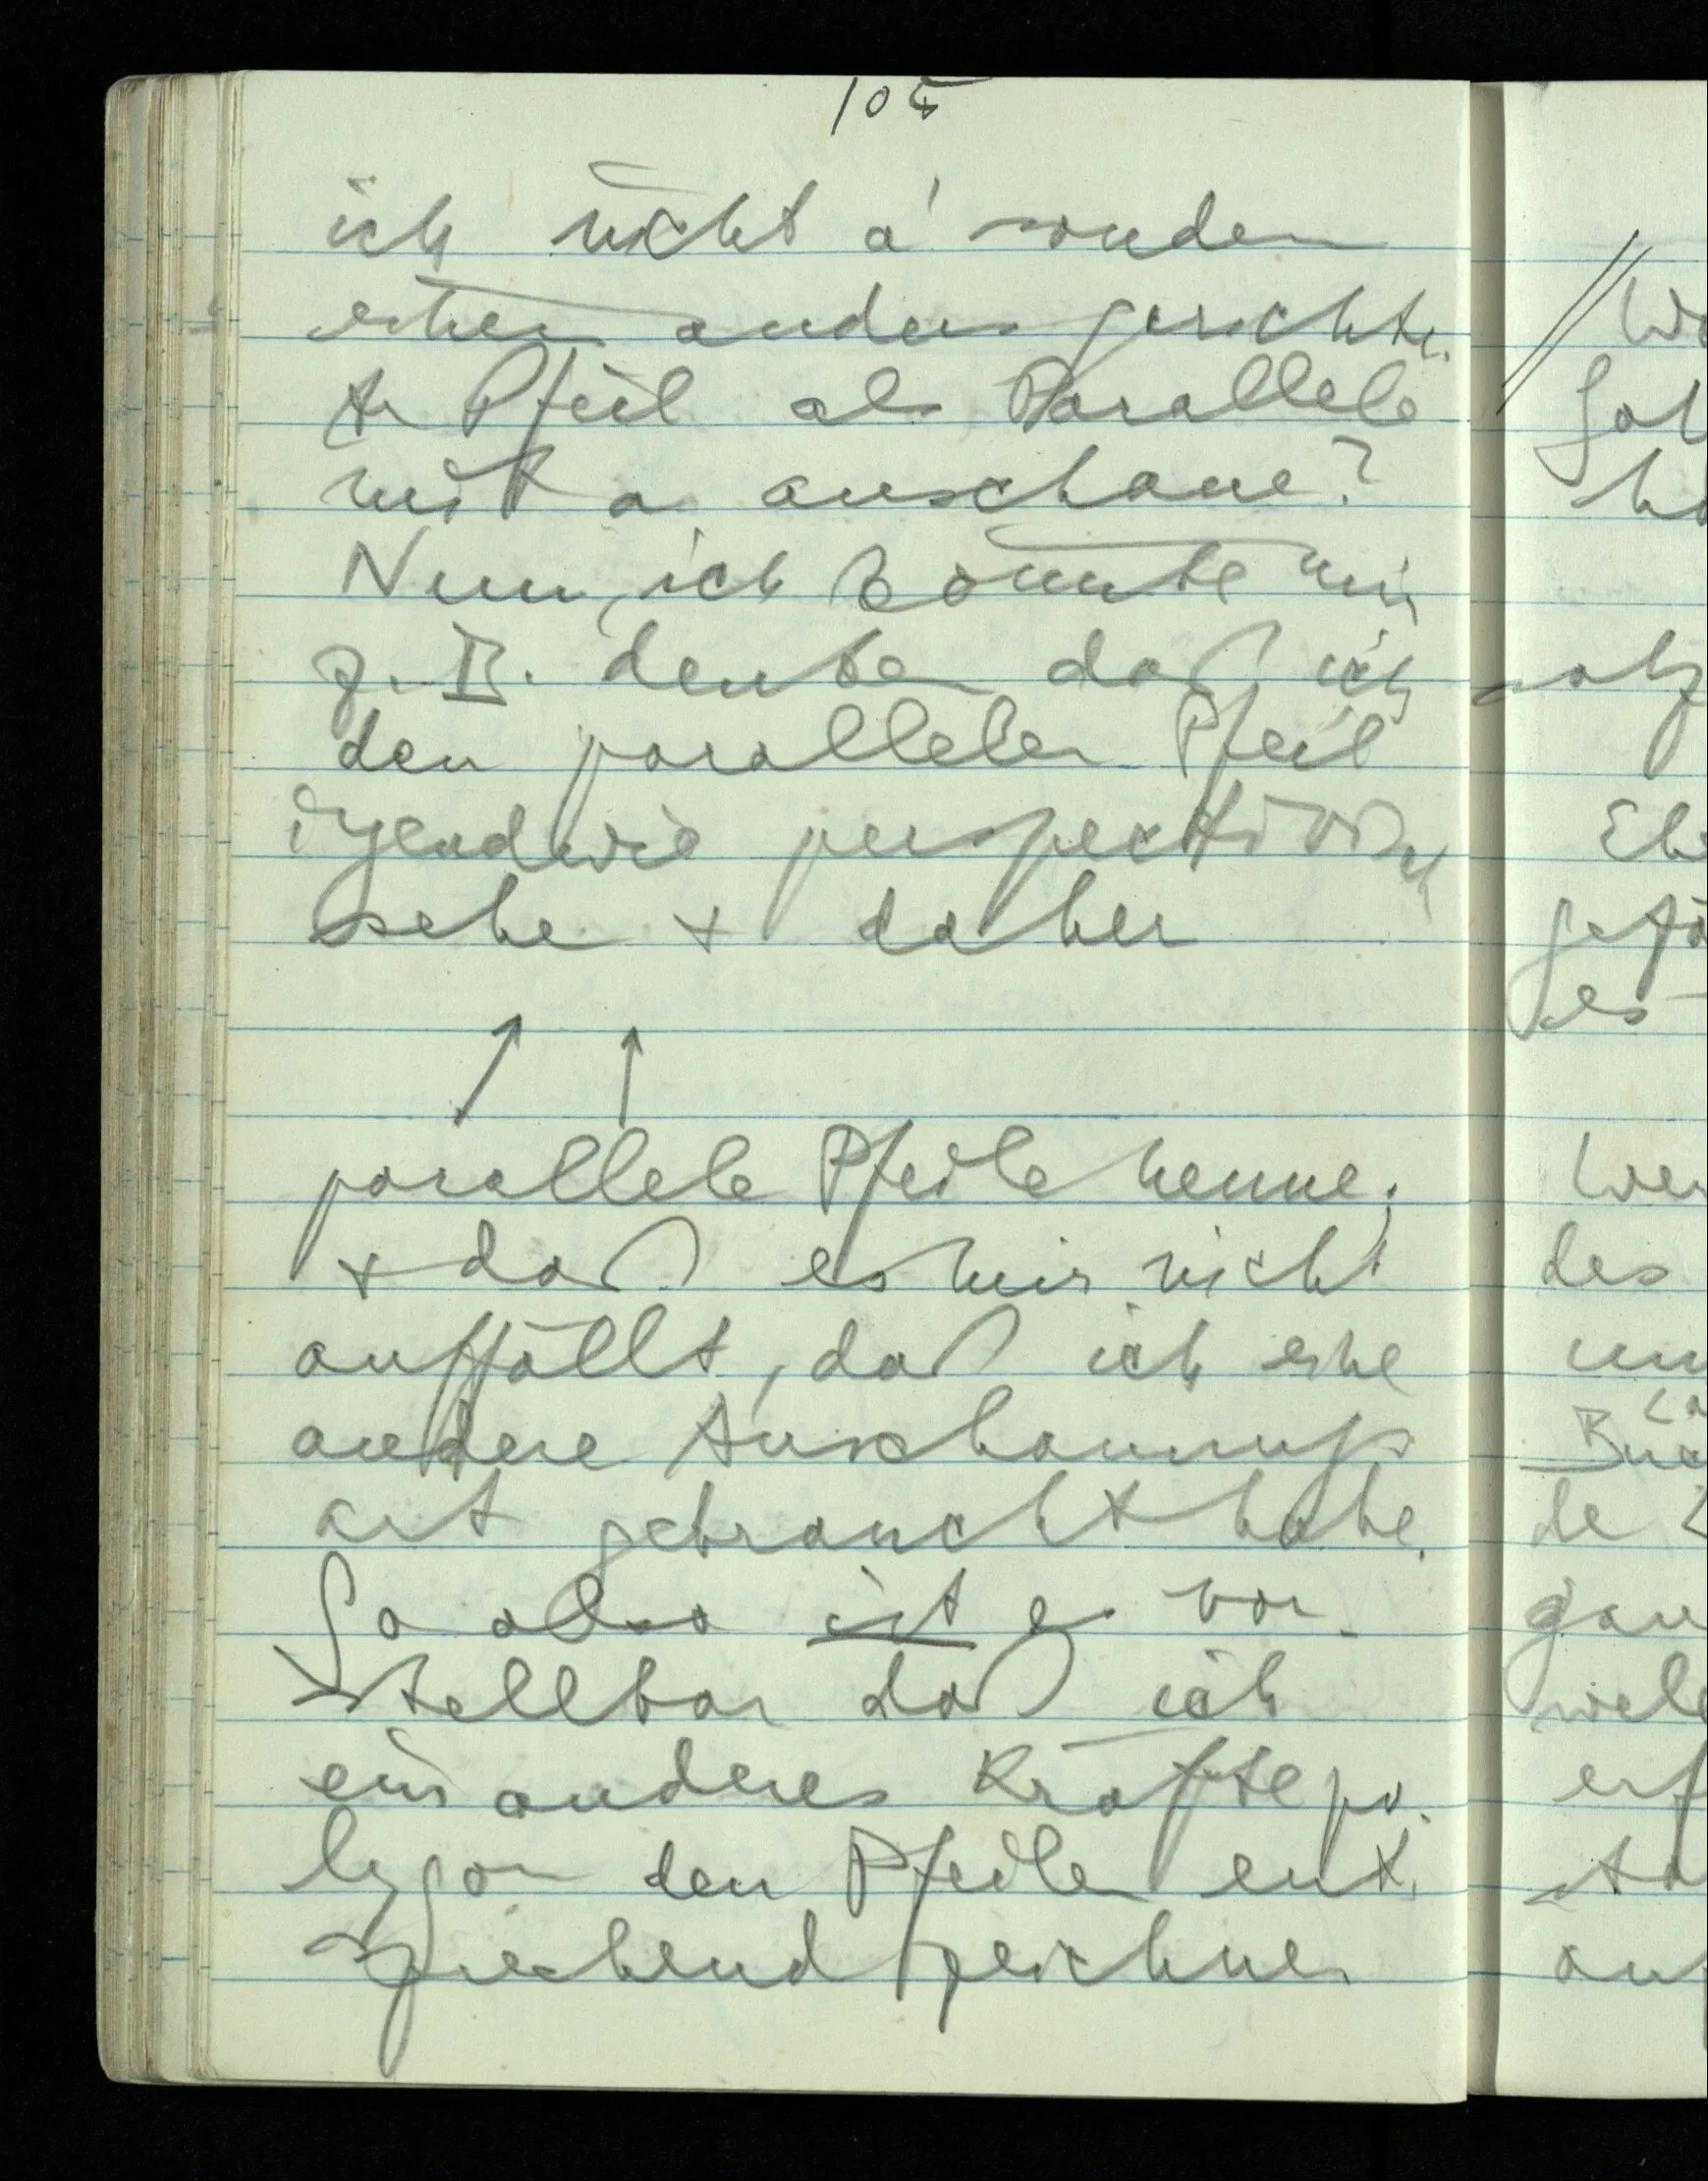 105
ich nicht a' sondern
einen anders gerichte-
ten Pfeil als Parallele
mit a anschaue?
Nun, ich könnte mir
z.B. denken daß ich
den parallelen Pfeil
irgendwie perspektivisch
sehe + daher
↗ ↑
parallele Pfeile nenne;
+ daß es mir nicht
auffällt, daß ich eine
andere Anschauungs
art gebraucht habe.
So also ist es vor-
stellbar daß ich
ein anderes Kräftepo-
lygon den Pfeilen ent-
sprechend zeichne